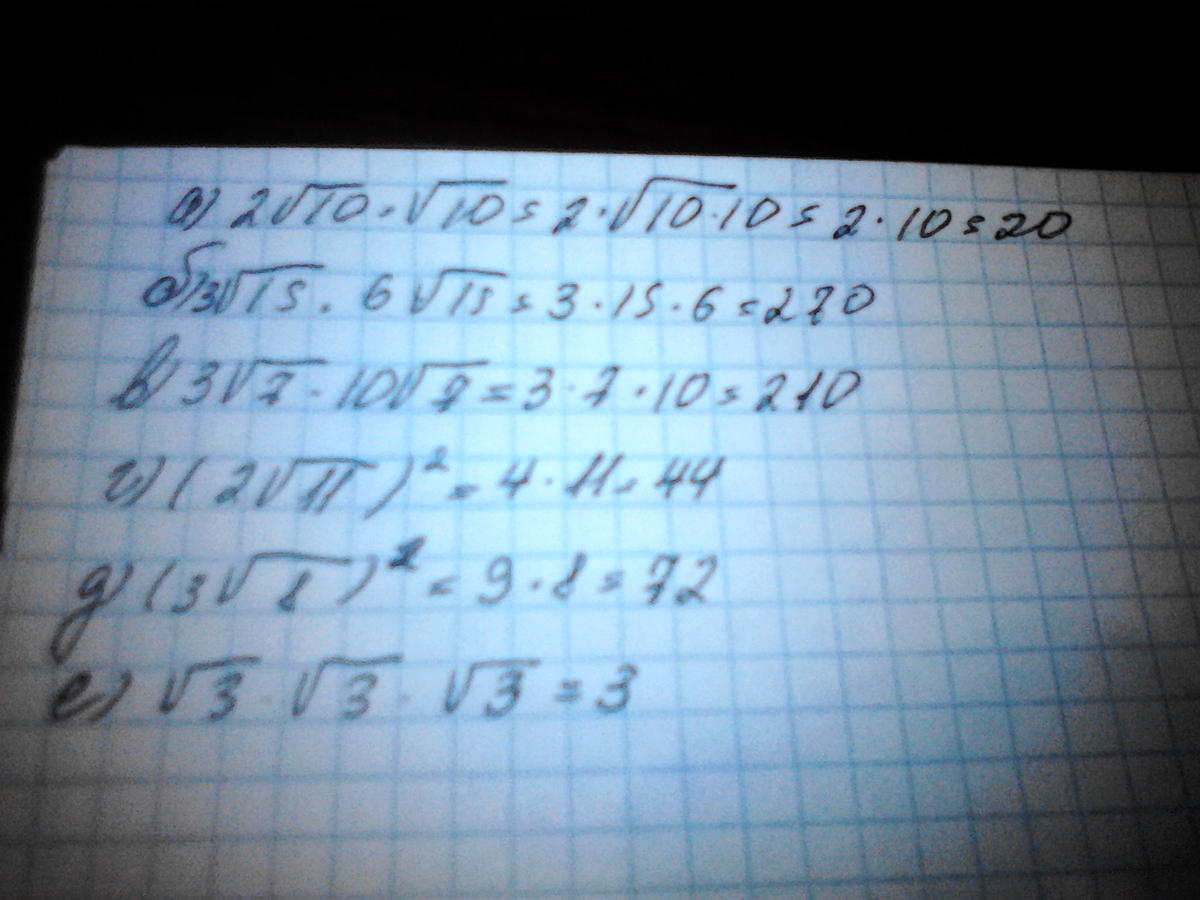 а) 2√10 · √10 = 2 · √10·10 = 2 · 10 = 20
б) 3√15 · 6√15 = 3 · 15 · 6 = 270
в) 3√7 · 10√7 = 3 · 7 · 10 = 210
г) (2√11)² = 4 · 11 = 44
д) (3√8)² = 9 · 8 = 72
е) √3 · √3 · √3 = 3